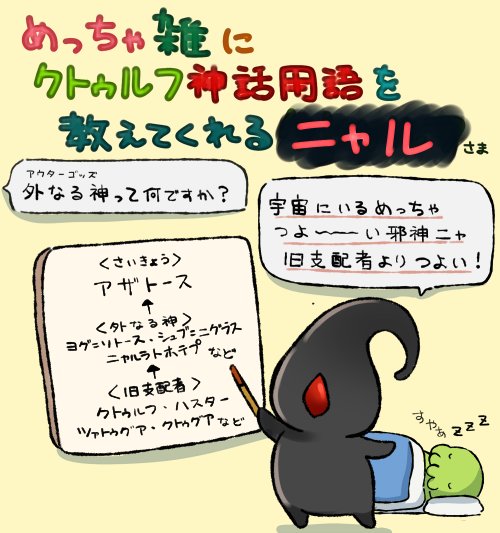 めっちゃ雑に
クトゥルフ神話用語を
教えてくれるニャルさま
アウターゴッズ
外なる神って何ですか？
宇宙にいるめっちゃ
つよ〜〜い邪神ニャ
旧支配者よりつよい！
＜さいきょう＞
アザトース
↑
＜外なる神＞
ヨグ＝ソトース・シュブ＝ニグラス
ニャルラトホテプ など
↑
＜旧支配者＞
クトゥルフ・ハスター
ツァトゥグア・クトゥグア など
すやぁ zzz